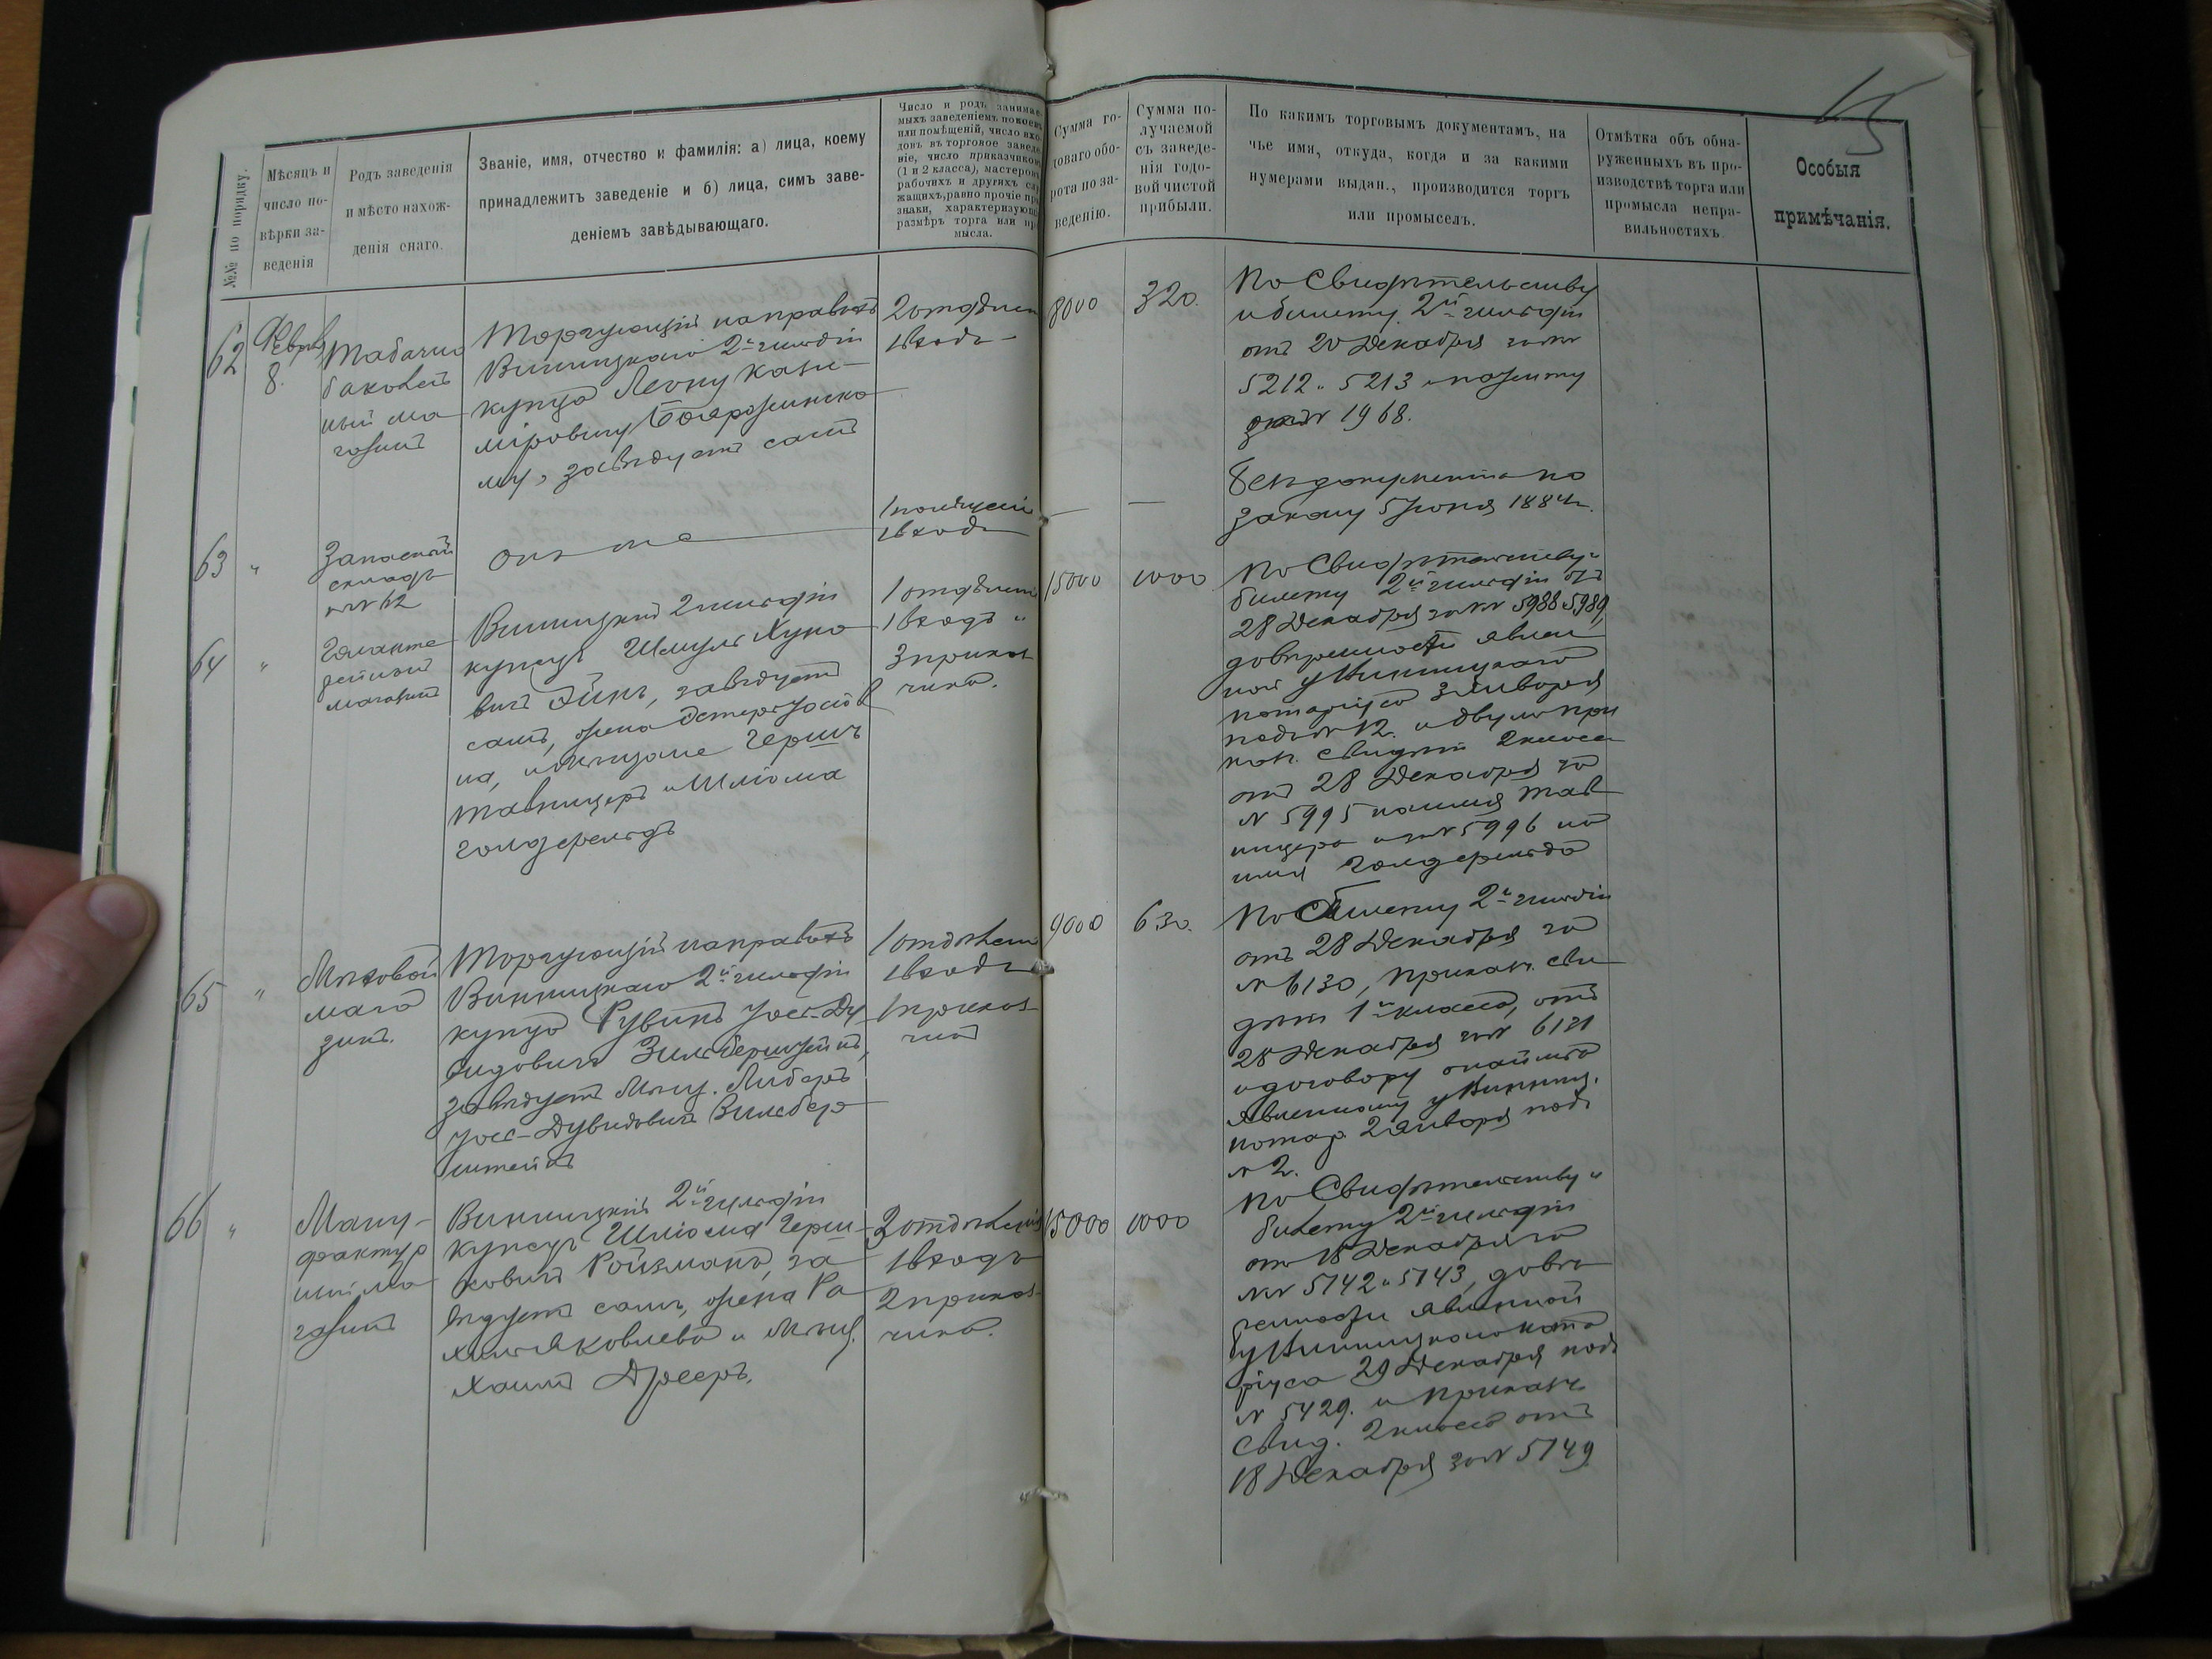 15
№№ по порядку.
Мѣсяцъ и
число по-
вѣрки за-
веденія
Родъ заведенія
и мѣсто нахож-
денія онаго.
Званіе, имя, отчество и фамилія: а) лица, коему
принадлежитъ заведеніе и б) лица, симъ заве-
деніемъ завѣдывающаго.
Число и родъ занимае-
мыхъ заведеніемъ покоевъ
или помѣщеній, число вхо-
довъ въ торговое заведе-
ніе, число приказчиковъ
(1 и 2 класса), мастеровъ
рабочихъ и другихъ слу
жащихъ, равно прочіе при
знаки, характеризующ
размѣръ торга или пр
мысла.
Сумма го-
доваго обо-
рота по за-
веденію.
Сумма по-
лучаемой
съ заведе-
нія годо-
вой чистой
прибыли.
По какимъ торговымъ документамъ, на
чье имя, откуда, когда и за какими
нумерами выдан., производится торгъ
или промыселъ.
Отмѣтка объ обна-
руженныхъ въ про-
изводствѣ торга или
промысла непра-
вильностяхъ
Особыя
примѣчанія.
62
Февраля
8.
Табачно
бакалей
ный ма
газинъ
Торгующій на правахъ
Винницкаго 2й гильдіи
купца Леону Кази-
міровичу Бояржинско
му, завѣдуетъ самъ
2 отдѣлен
1 входъ
8000
320.
По Свидѣтельству
и билету 2й гильдіи
отъ 20 Декабря за №№
5212 и 5213 и
за № 1968.
63
"
Запасный
складъ
къ № 62
Онъ же
1 помѣщеніе
1 входъ
—
—
Безъ документа по
закону 5 Іюня 1884 г.
64
"
Галанте
рейный
магазинъ
Винницкій 2 гильдіи
купецъ Шмуль Хуно
вичъ Эйнъ, завѣдуетъ
самъ, жена Эстеръ
на, и мѣщане Гершъ
Тавницеръ и Шліома
Голдфельдъ
1 отдѣлен
1 входъ и
3 приказ
чика.
15000
1000
По Свидѣтельству и
билету 2й гильдіи отъ
28 Декабря за №№ 5988 и 5989,
довѣренности явлен
ной у Винницкаго
нотаріуса 3 Января
подъ № 12. и двумъ при
каз. свидѣт 2 класса
отъ 28 Декабря за
№ 5995 на имя Тав
ницера и за № 5996 на
имя Голдфельда
65
"
Мѣховой
мага
зинъ.
Торгующій на правахъ
Винницкаго 2й гильдіи
купца Рувинъ Іось-Ду
видовичъ Зильберштейнъ,
завѣдуетъ мѣщ. Либеръ
Іось-Дувидовичъ Зильбер
штейнъ
1 отдѣлен
1 входъ
1 приказ
чикъ
9000
630.
По билету 2й гильдіи
отъ 28 Декабря за
№ 6130, приказ. сви
дѣт 1й класса, отъ
28 Декабря за № 6131
и договору о найма
явленному у Винниц.
нотар. 2 Января подъ
№ 2.
66
"
Ману-
фактур
ный ма
газинъ
Винницкій 2й гильдіи
купецъ Шліома Герш
ковичъ Ройзманъ, за
вѣдуетъ самъ, жена Ра
хиль Яковлева и мѣщ.
Хаимъ Дрееръ.
2 отдѣленія
1 входъ
2 приказ
чика.
15000
1000
По Свидѣтельству и
билету 2й гильдіи
отъ 18 Декабря за
№№ 5142 и 5143, довѣ
ренности явленной
у Винницкаго нота
ріуса 29 Декабря подъ
№ 5429. и приказч.
свид. 2 класса отъ
18 Декабря за № 5149